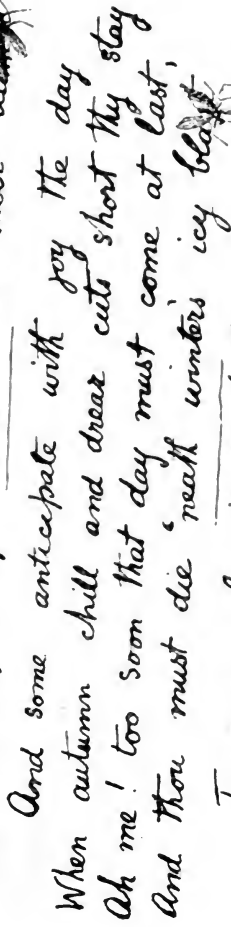 And some anticipate with joy the day
When autumn chill and drear cuts short thy stay
Ah me! too soon that day must come at last,
And thou must die 'neath winter's icy blast